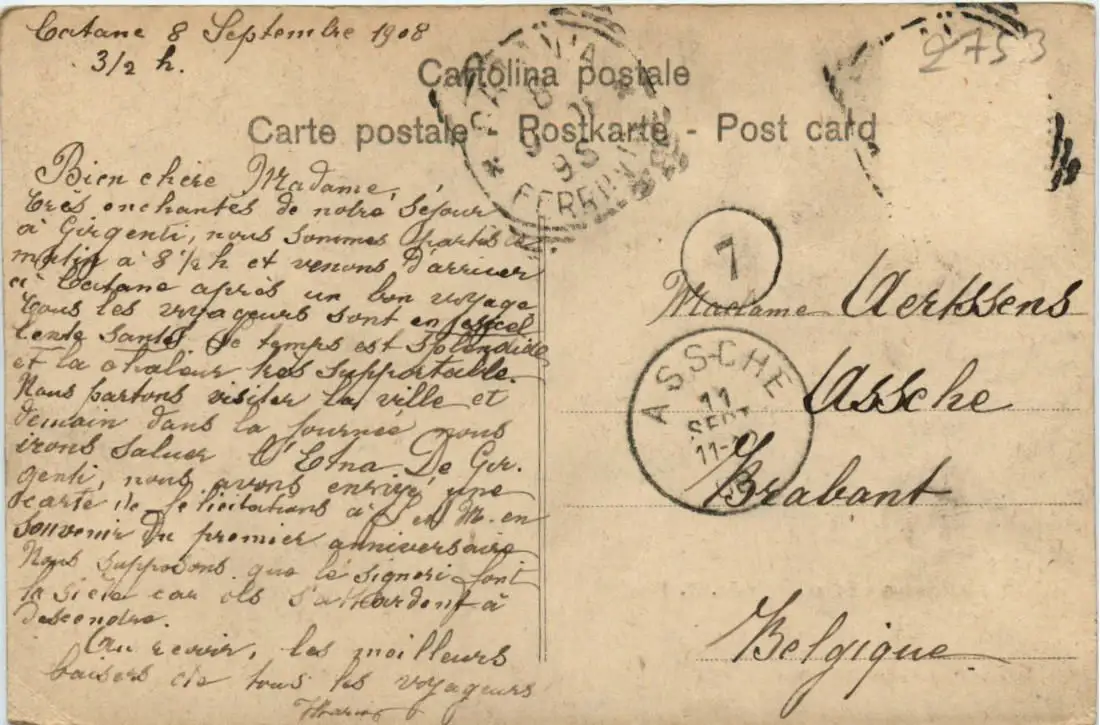 Catane 8 Septembre 1908
3 1/2 h.
2753
Cartolina postale
Carte postale - Postkarte - Post card
CATANIA
FERROVIA
8
9
Bien chère Madame,
Très enchantés de notre séjour
à Girgenti, nous sommes partis ce
matin à 8 1/2 h et venons d'arriver
à Catane après un bon voyage
Tous les voyageurs sont en excel
lente santé le temps est splendide
et la chaleur très supportable.
Nous partons visiter la ville et
demain dans la journée nous
irons saluer l'Etna. De Gir-
genti, nous avons envoyé une
carte de félicitations à et M. en
souvenir du premier anniversaire
Nous supposons que les signori font
la sieste car ils s'attardent à
descendre.
Au revoir, les meilleurs
baisers de tous les voyageurs
7
Madame Aertssens
ASSCHE
11
SEPT
11-12
Assche
Brabant
Belgique